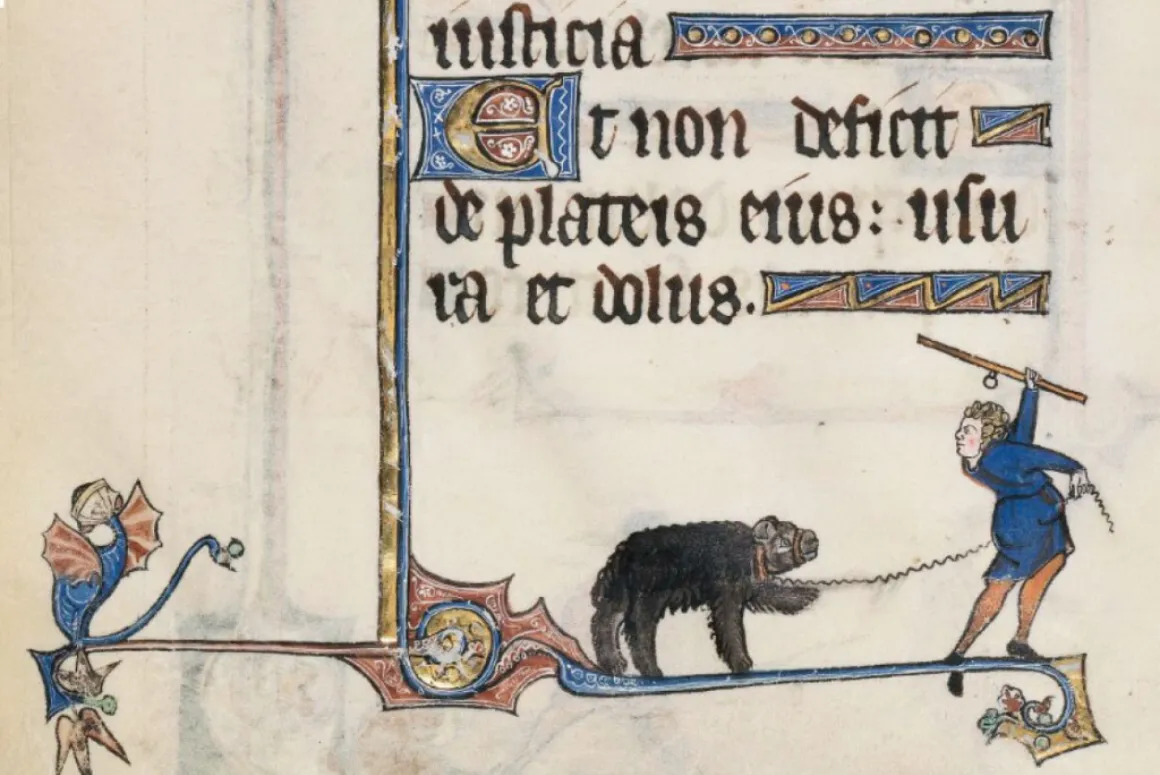 iusticia
Et non deficit
de plateis eius: usu
ra et dolus.